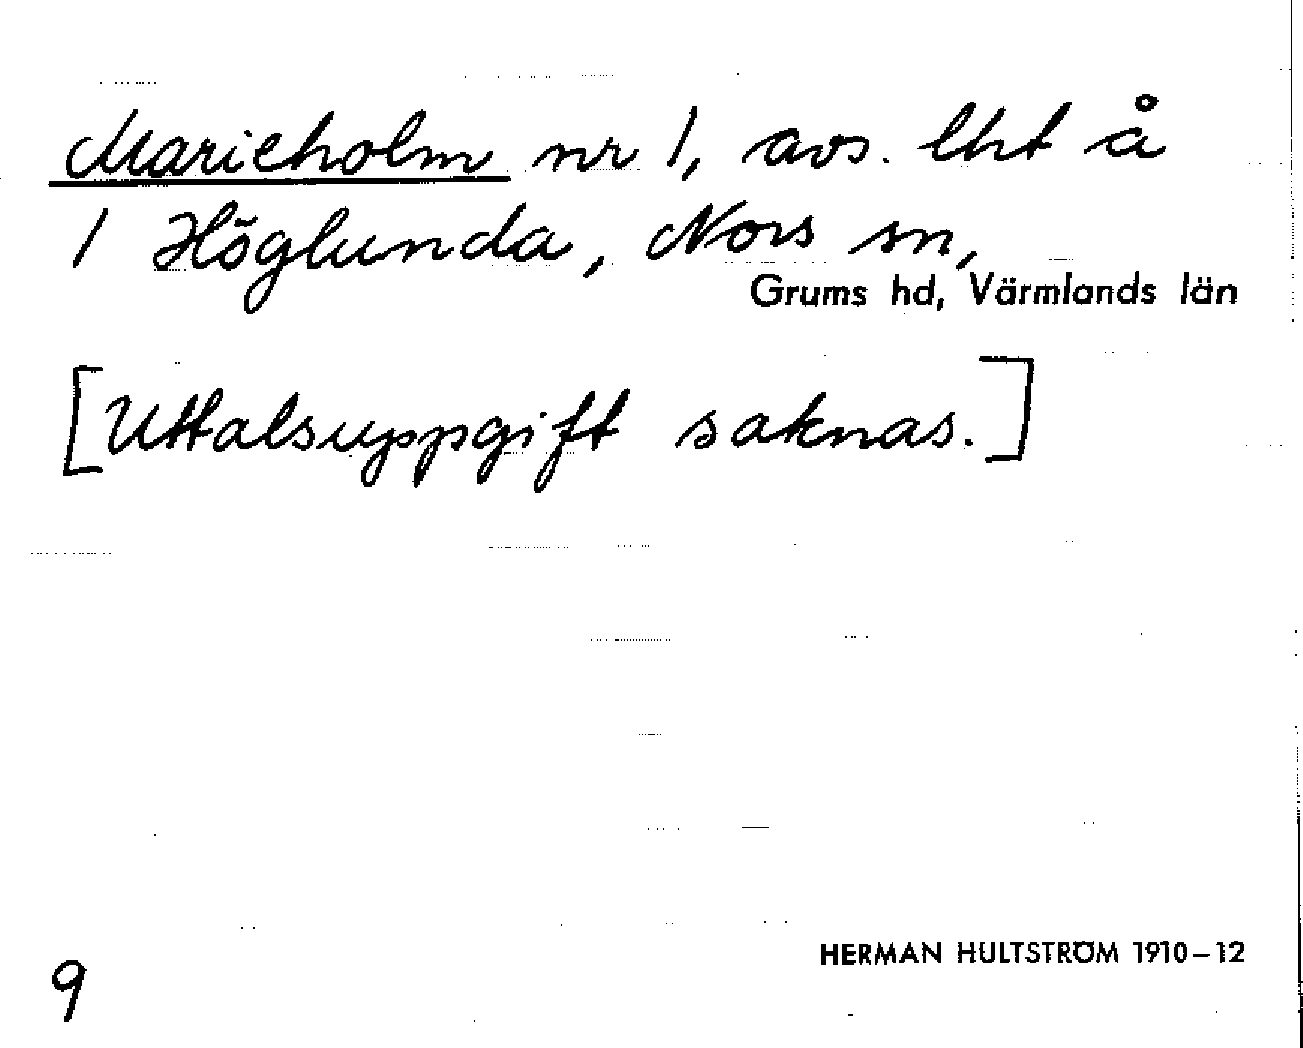 Marieholm nr 1, avs. lht å
1 Höglunda, Nors sn,
Grums hd, Värmlands län
[Uttalsuppgift saknas.]
HERMAN HULTSTRÖM 1910–12
9